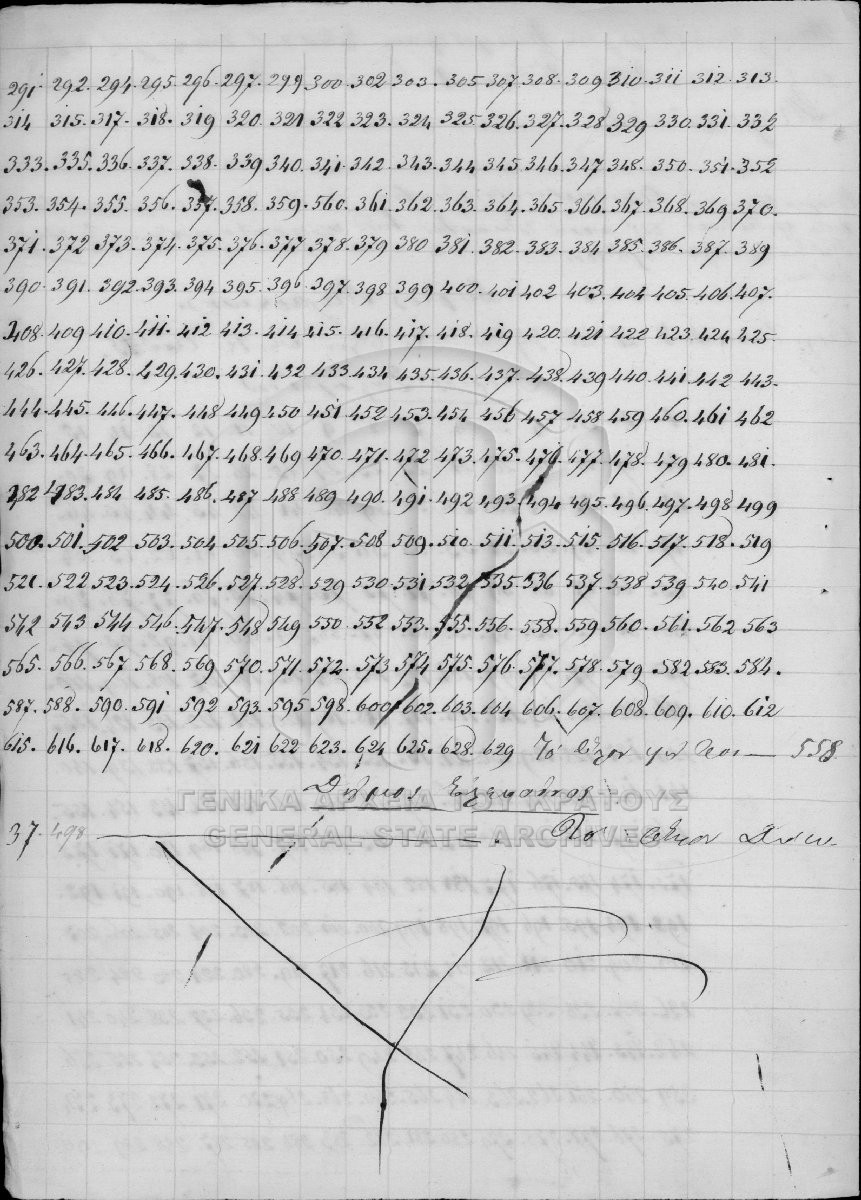 291 292. 294. 295. 296. 297. 299 300. 302 303. 305 307. 308. 309 310. 311 312. 313.
314 315. 317. 318. 319 320. 321 322 323. 324 325. 326. 327. 328 329 330. 331. 332
333. 335. 336. 337. 338. 339 340. 341. 342 343. 344 345. 346. 347 348. 350. 351. 352
353. 354. 355. 356. 357. 358. 359. 560. 361 362. 363. 364. 365. 366. 367. 368. 369 370.
371. 372 373. 374. 375. 376. 377 378. 379 380 381. 382. 383. 384 385. 386. 387. 389
390. 391. 392. 393. 394 395. 396 397. 398 399 400. 401 402 403. 404 405. 406. 407.
408. 409 410. 411. 412 413. 414 415. 416. 417. 418. 419 420. 421 422 423. 424 425.
426. 427. 428. 429. 430. 431 432 433. 434 435. 436. 437. 438. 439 440. 441 442 443.
444. 445. 446. 447. 448 449 450 451 452 453. 454 456 457 458 459 460. 461 462
463. 464. 465. 466. 467. 468. 469 470. 471. 472 473. 475. 476. 477. 478. 479 480. 481.
482 483. 484 485. 486. 487 488 489 490. 491. 492 493. 494 495. 496. 497. 498 499
500. 501. 502 503. 504 505. 506. 507. 508 509. 510. 511. 513. 515. 516. 517. 518. 519
521. 522 523. 524. 526. 527. 528. 529 530. 531. 532 535. 536 537. 538 539 540. 541
542 543 544 546. 547. 548 549 550 552 553. 555. 556. 558. 559 560. 561. 562 563
565. 566. 567 568. 569 570. 571. 572. 573 574 575. 576. 577. 578. 579 582 583. 584.
587. 588. 590. 591 592 593. 595 598. 600. 602. 603. 604 606. 607. 608. 609. 610. 612
615. 616. 617. 618. 620. 621 622 623. 624 625. 628. 629 Το 558
ΓΕΝΙΚΑ ΑΡΧΕΙΑ ΤΟΥ ΚΡΑΤΟΥΣ
GENERAL STATE ARCHIVES
37. 498